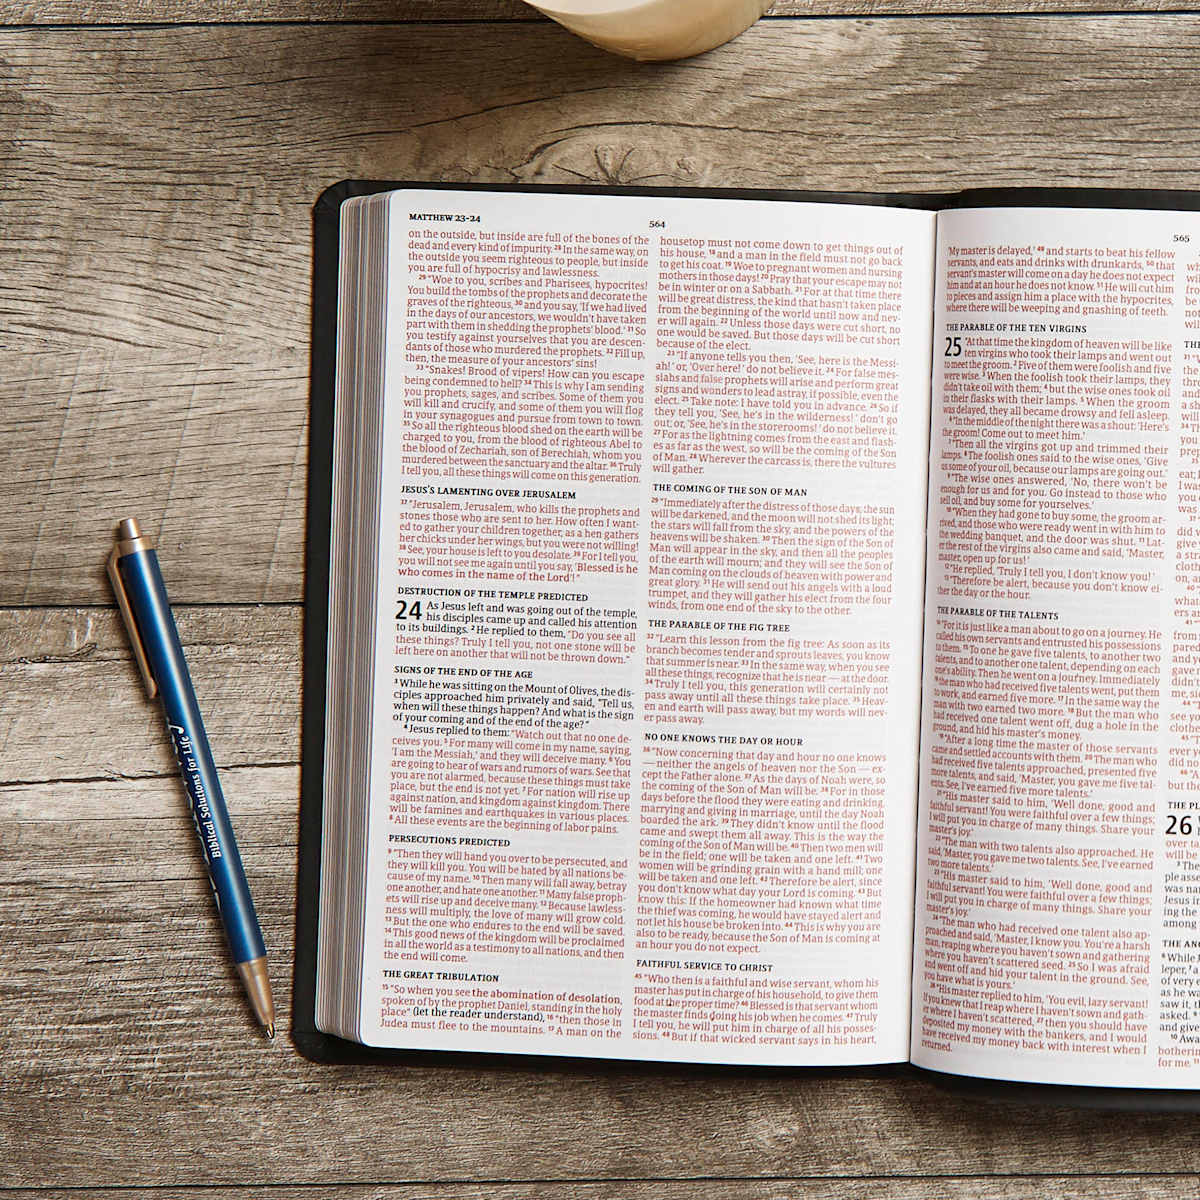 MATTHEW 23-24
564
on the outside, but inside are full of the bones of the
dead and every kind of impurity. 28 In the same way, on
the outside you seem righteous to people, but inside
you are full of hypocrisy and lawlessness.
29 "Woe to you, scribes and Pharisees, hypocrites!
You build the tombs of the prophets and decorate the
graves of the righteous, 30 and you say, 'If we had lived
in the days of our ancestors, we wouldn't have taken
part with them in shedding the prophets' blood.' 31 So
you testify against yourselves that you are descen-
dants of those who murdered the prophets. 32 Fill up,
then, the measure of your ancestors' sins!
33 "Snakes! Brood of vipers! How can you escape
being condemned to hell? 34 This is why I am sending
you prophets, sages, and scribes. Some of them you
will kill and crucify, and some of them you will flog
in your synagogues and pursue from town to town.
35 So all the righteous blood shed on the earth will be
charged to you, from the blood of righteous Abel to
the blood of Zechariah, son of Berechiah, whom you
murdered between the sanctuary and the altar. 36 Truly
I tell you, all these things will come on this generation.
JESUS'S LAMENTING OVER JERUSALEM
37 "Jerusalem, Jerusalem, who kills the prophets and
stones those who are sent to her. How often I want-
ed to gather your children together, as a hen gathers
her chicks under her wings, but you were not willing!
38 See, your house is left to you desolate. 39 For I tell you,
you will not see me again until you say, 'Blessed is he
who comes in the name of the Lord'!"
DESTRUCTION OF THE TEMPLE PREDICTED
24 As Jesus left and was going out of the temple,
his disciples came up and called his attention
to its buildings. 2 He replied to them, "Do you see all
these things? Truly I tell you, not one stone will be
left here on another that will not be thrown down."
SIGNS OF THE END OF THE AGE
3 While he was sitting on the Mount of Olives, the dis-
ciples approached him privately and said, "Tell us,
when will these things happen? And what is the sign
of your coming and of the end of the age?"
4 Jesus replied to them: "Watch out that no one de-
ceives you. 5 For many will come in my name, saying,
'I am the Messiah,' and they will deceive many. 6 You
are going to hear of wars and rumors of wars. See that
you are not alarmed, because these things must take
place, but the end is not yet. 7 For nation will rise up
against nation, and kingdom against kingdom. There
will be famines and earthquakes in various places.
8 All these events are the beginning of labor pains.
PERSECUTIONS PREDICTED
9 "Then they will hand you over to be persecuted, and
they will kill you. You will be hated by all nations be-
cause of my name. 10 Then many will fall away, betray
one another, and hate one another. 11 Many false proph-
ets will rise up and deceive many. 12 Because lawless-
ness will multiply, the love of many will grow cold.
13 But the one who endures to the end will be saved.
14 This good news of the kingdom will be proclaimed
in all the world as a testimony to all nations, and then
the end will come.
THE GREAT TRIBULATION
15 "So when you see the abomination of desolation,
spoken of by the prophet Daniel, standing in the holy
place" (let the reader understand), 16 "then those in
Judea must flee to the mountains. 17 A man on the
housetop must not come down to get things out of
his house, 18 and a man in the field must not go back
to get his coat. 19 Woe to pregnant women and nursing
mothers in those days! 20 Pray that your escape may not
be in winter or on a Sabbath. 21 For at that time there
will be great distress, the kind that hasn't taken place
from the beginning of the world until now and nev-
er will again. 22 Unless those days were cut short, no
one would be saved. But those days will be cut short
because of the elect.
23 "If anyone tells you then, 'See, here is the Messi-
ah!' or, 'Over here!' do not believe it. 24 For false mes-
siahs and false prophets will arise and perform great
signs and wonders to lead astray, if possible, even the
elect. 25 Take note: I have told you in advance. 26 So if
they tell you, 'See, he's in the wilderness!' don't go
out; or, 'See, he's in the storerooms!' do not believe it.
27 For as the lightning comes from the east and flash-
es as far as the west, so will be the coming of the Son
of Man. 28 Wherever the carcass is, there the vultures
will gather.
THE COMING OF THE SON OF MAN
29 "Immediately after the distress of those days, the sun
will be darkened, and the moon will not shed its light;
the stars will fall from the sky, and the powers of the
heavens will be shaken. 30 Then the sign of the Son of
Man will appear in the sky, and then all the peoples
of the earth will mourn; and they will see the Son of
Man coming on the clouds of heaven with power and
great glory. 31 He will send out his angels with a loud
trumpet, and they will gather his elect from the four
winds, from one end of the sky to the other.
THE PARABLE OF THE FIG TREE
32 "Learn this lesson from the fig tree: As soon as its
branch becomes tender and sprouts leaves, you know
that summer is near. 33 In the same way, when you see
all these things, recognize that he is near — at the door.
34 Truly I tell you, this generation will certainly not
pass away until all these things take place. 35 Heav-
en and earth will pass away, but my words will nev-
er pass away.
NO ONE KNOWS THE DAY OR HOUR
36 "Now concerning that day and hour no one knows
— neither the angels of heaven nor the Son — ex-
cept the Father alone. 37 As the days of Noah were, so
the coming of the Son of Man will be. 38 For in those
days before the flood they were eating and drinking,
marrying and giving in marriage, until the day Noah
boarded the ark. 39 They didn't know until the flood
came and swept them all away. This is the way the
coming of the Son of Man will be. 40 Then two men will
be in the field; one will be taken and one left. 41 Two
women will be grinding grain with a hand mill; one
will be taken and one left. 42 Therefore be alert, since
you don't know what day your Lord is coming. 43 But
know this: If the homeowner had known what time
the thief was coming, he would have stayed alert and
not let his house be broken into. 44 This is why you are
also to be ready, because the Son of Man is coming at
an hour you do not expect.
FAITHFUL SERVICE TO CHRIST
45 "Who then is a faithful and wise servant, whom his
master has put in charge of his household, to give them
food at the proper time? 46 Blessed is that servant whom
the master finds doing his job when he comes. 47 Truly
I tell you, he will put him in charge of all his posses-
sions. 48 But if that wicked servant says in his heart,
565
'My master is delayed,' 49 and starts to beat his fellow
servants, and eats and drinks with drunkards, 50 that
servant's master will come on a day he does not expect
him and at an hour he does not know. 51 He will cut him
to pieces and assign him a place with the hypocrites,
where there will be weeping and gnashing of teeth.
THE PARABLE OF THE TEN VIRGINS
25 "At that time the kingdom of heaven will be like
ten virgins who took their lamps and went out
to meet the groom. 2 Five of them were foolish and five
were wise. 3 When the foolish took their lamps, they
didn't take oil with them; 4 but the wise ones took oil
in their flasks with their lamps. 5 When the groom
was delayed, they all became drowsy and fell asleep.
6 "In the middle of the night there was a shout: 'Here's
the groom! Come out to meet him.'
7 "Then all the virgins got up and trimmed their
lamps. 8 The foolish ones said to the wise ones, 'Give
us some of your oil, because our lamps are going out.'
9 "The wise ones answered, 'No, there won't be
enough for us and for you. Go instead to those who
sell oil, and buy some for yourselves.'
10 "When they had gone to buy some, the groom ar-
rived, and those who were ready went in with him to
the wedding banquet, and the door was shut. 11 Lat-
er the rest of the virgins also came and said, 'Master,
master, open up for us!'
12 "He replied, 'Truly I tell you, I don't know you!'
13 "Therefore be alert, because you don't know ei-
ther the day or the hour.
THE PARABLE OF THE TALENTS
14 "For it is just like a man about to go on a journey. He
called his own servants and entrusted his possessions
to them. 15 To one he gave five talents, to another two
talents, and to another one talent, depending on each
one's ability. Then he went on a journey. Immediately
16 the man who had received five talents went, put them
to work, and earned five more. 17 In the same way the
man with two earned two more. 18 But the man who
had received one talent went off, dug a hole in the
ground, and hid his master's money.
19 "After a long time the master of those servants
came and settled accounts with them. 20 The man who
had received five talents approached, presented five
more talents, and said, 'Master, you gave me five tal-
ents. See, I've earned five more talents.'
21 "His master said to him, 'Well done, good and
faithful servant! You were faithful over a few things;
I will put you in charge of many things. Share your
master's joy.'
22 "The man with two talents also approached. He
said, 'Master, you gave me two talents. See, I've earned
two more talents.'
23 "His master said to him, 'Well done, good and
faithful servant! You were faithful over a few things;
I will put you in charge of many things. Share your
master's joy.'
24 "The man who had received one talent also ap-
proached and said, 'Master, I know you. You're a harsh
man, reaping where you haven't sown and gathering
where you haven't scattered seed. 25 So I was afraid
and went off and hid your talent in the ground. See,
you have what is yours.'
26 "His master replied to him, 'You evil, lazy servant!
If you knew that I reap where I haven't sown and gath-
er where I haven't scattered, 27 then you should have
deposited my money with the bankers, and I would
have received my money back with interest when I
returned.
26
Biblical Solutions for Life